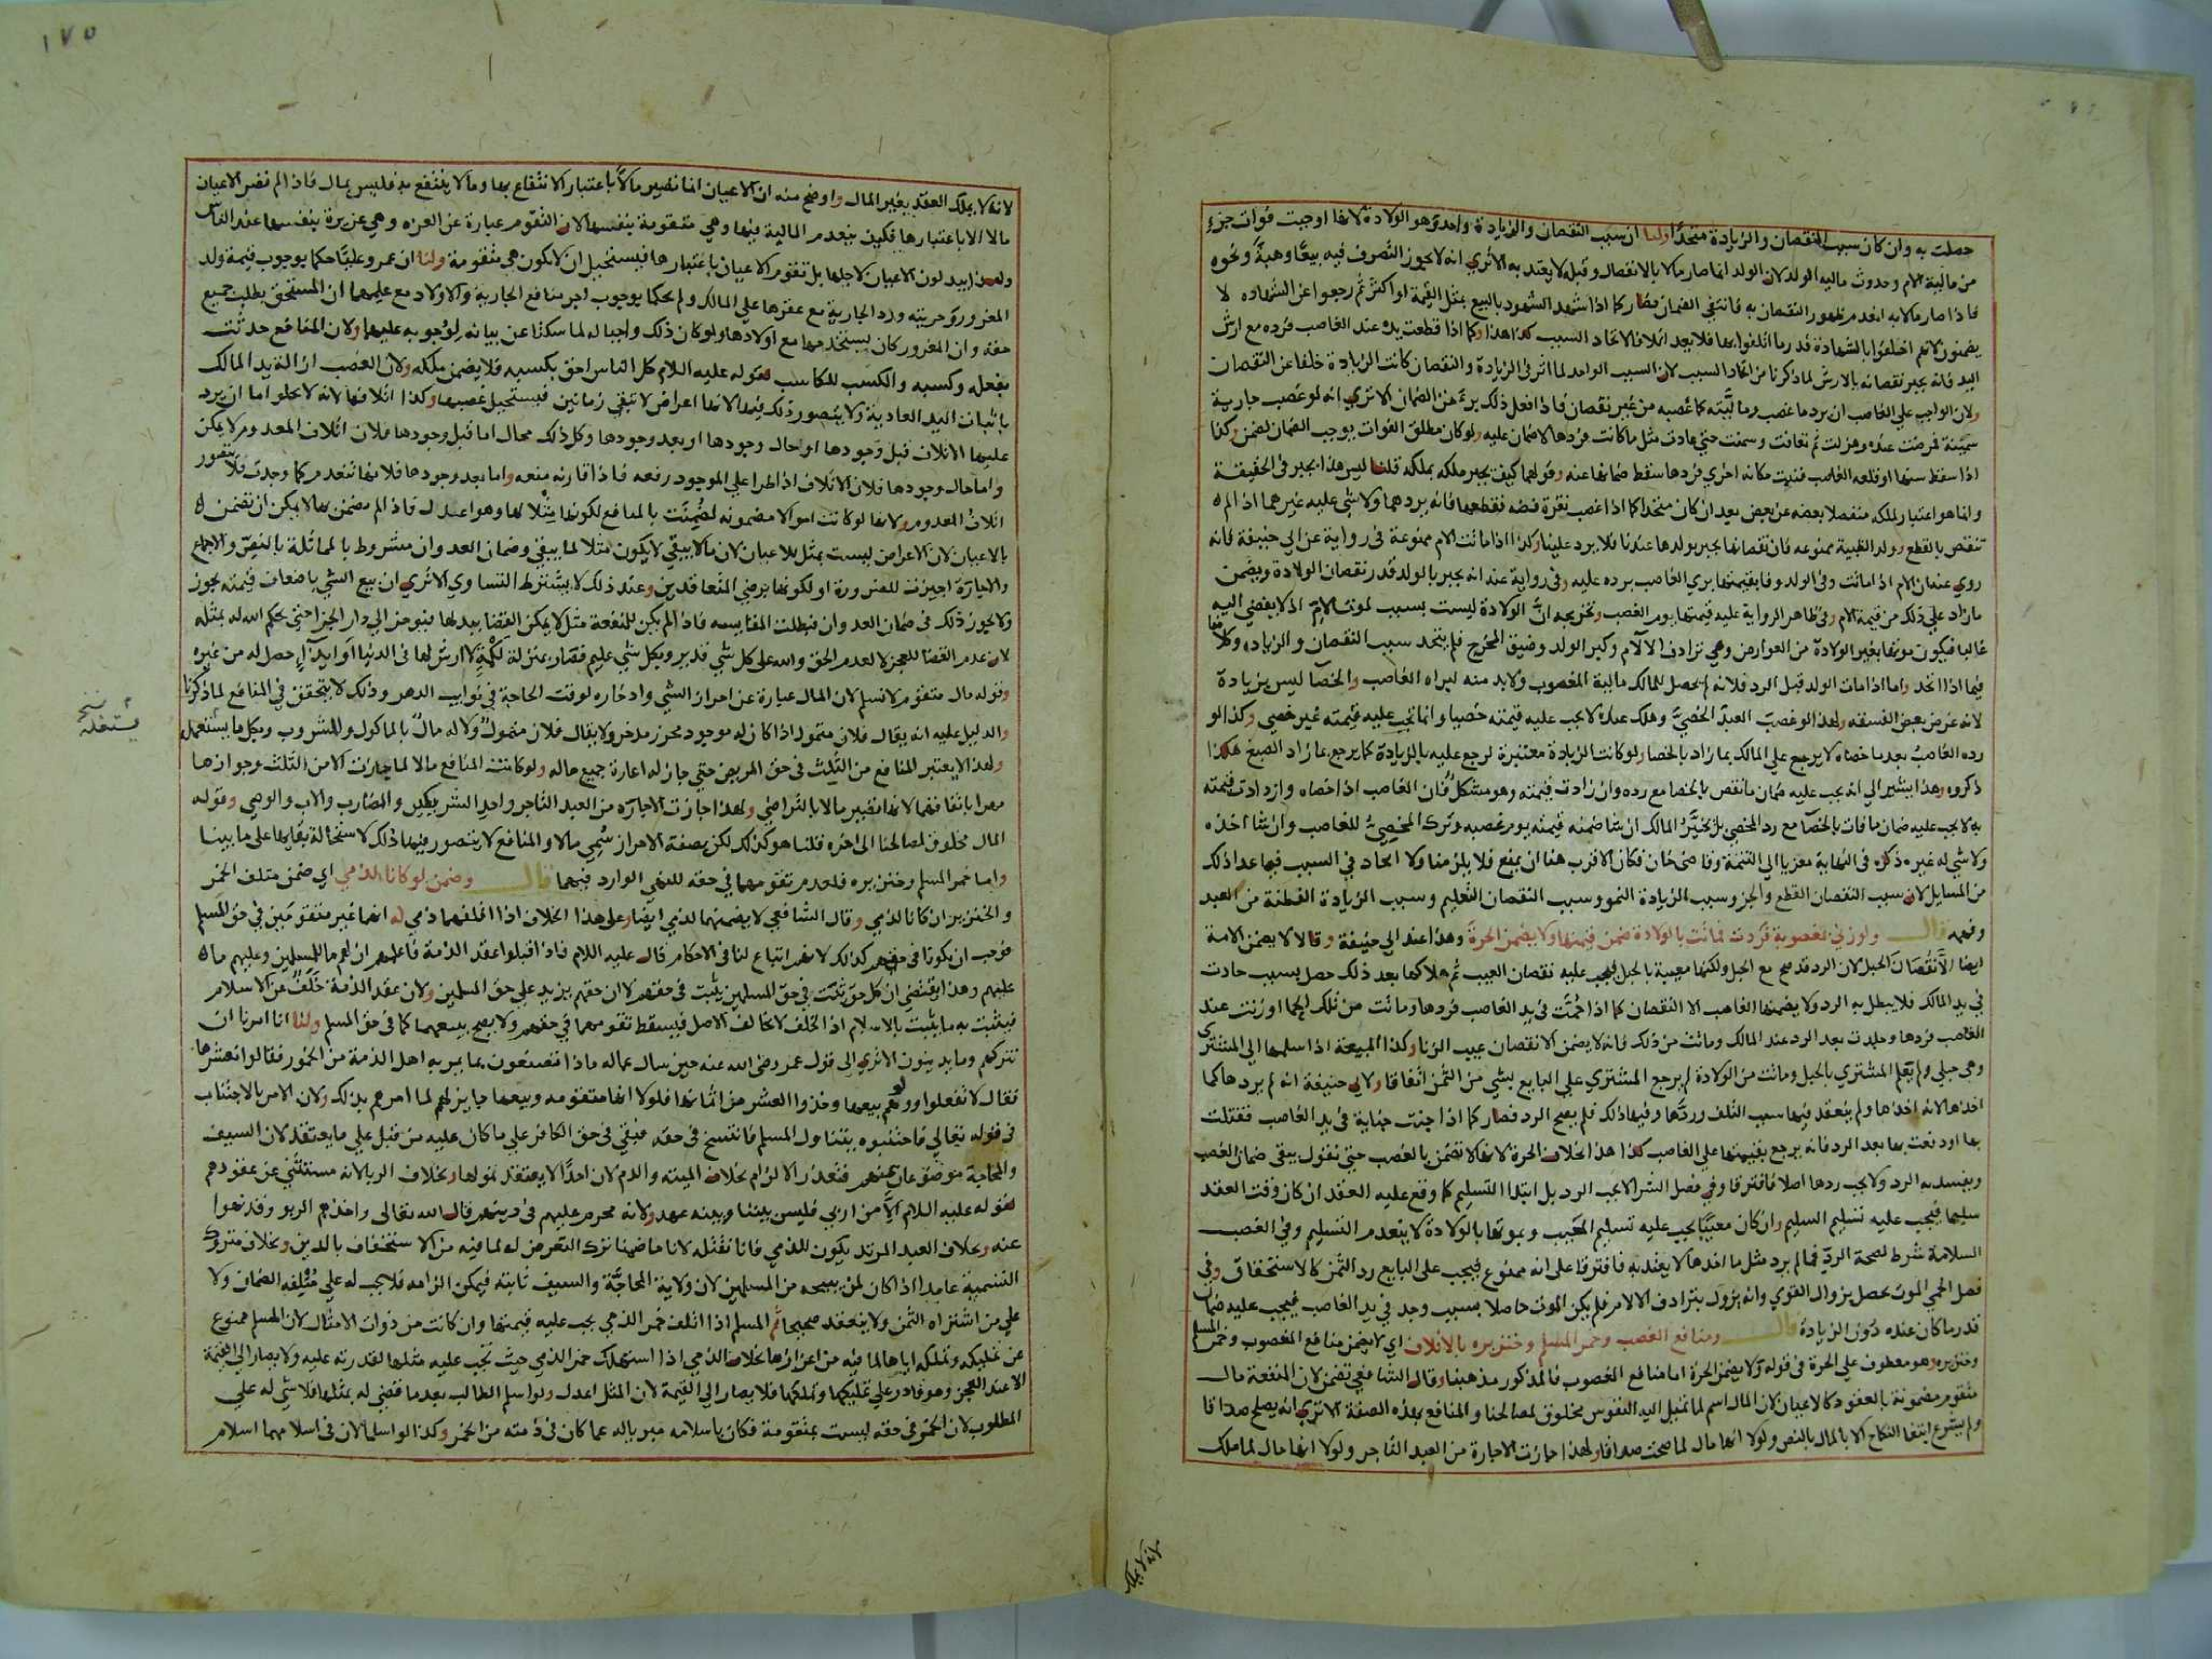 حصلت به وان كان سبب النقصان والزيادة متحدًا ولنا ان سبب النقصان والزيادة واحد وهو الولادة لانها اوجبت فوات جزء
من مالية الام وحدوث مالية الولد لان الولد انما صار مالا بالانفصال وقبله لا يعتد به الا ترى انه لا يجوز التصرف فيه بيعًا وهبةً ونحوه
فاذا صار مالا به انعدم ظهور النقصان به فانتفى الضمان فصار كما اذا شهد الشهود بالبيع بمثل القيمة او اكثر ثم رجعوا عن الشهاده لا
يضمنون لانهم اخلفوا بالشهادة قدر ما اتلفوا بها فلا يعد اتلافا لاتحاد السبب كذا هذا وكما اذا قطعت يده عند الغاصب فرده مع ارش
اليد فانه يجبر نقصانه بالارش لما ذكرنا من اتحاد السبب لان السبب الواحد لما اثر في الزيادة والنقصان كانت الزيادة خلفا عن النقصان
ولان الواجب على الغاصب ان يرد ما غصب وماليته كما غصبه من غير نقصان فاذا فعل ذلك برئ من الضمان الا ترى انه لو غصب جارية
سمينة فمرضت عنده وهزلت ثم تعافت وسمنت حتى عادت مثل ما كانت فردها لا ضمان عليه ولو كان مطلق الفوات يوجب الضمان لضمن وكذا
اذا سقط سنها او قلعه الغاصب فنبتت مكانه اخرى فردها سقط ضمانها عنه وقولهما كيف يجبر ملكه بملكه قلنا ليس هذا بجبر في الحقيقة
وانما هو اعتبار لملكه منفصلا بعضه عن بعض بعد ان كان متحدا كما اذا غصب نقرة فضه فقطعها فانه يردهما ولا شي عليه غيرهما اذا لم
تنقص بالقطع وولد الظبية ممنوعه فان نقصانها يجبر بولدها عندنا فلا يرد علينا وكذا اذا ماتت الام ممنوعة في رواية عن ابي حنيفة فانه
روي عنه ان الام اذا ماتت وفي الولد وفا بقيمتها بري الغاصب برده عليه وفي رواية عنه انه يجبر بالولد قدر نقصان الولادة ويضمن
ما زاد على ذلك من قيمة الام وفي ظاهر الرواية عليه قيمتها يوم الغصب وتخريجه ان الولادة ليست بسبب لموت الام اذ لا يفضي اليه
غالبا فيكون موتها بغير الولادة من العوارض وهي ترادف الآلام وكبر الولد وضيق المخرج فلم يتحد سبب النقصان والزياده وكلامنا
فيما اذا اتحد واما اذا مات الولد قبل الرد فلانه لم يحصل للمالك مالية المغصوب ولا بد منه لبراه الغاصب والخصا ليس بزيادة
لانه غرض بعض الفسقه ولهذا لو غصب العبد الخصي وهلك عنده لا يجب عليه قيمته خصيا وانما تجب عليه قيمته غير خصي وكذا لو
رده الغاصب بعد ما خصاه لا يرجع على المالك بما زاد بالخصا ولو كانت الزيادة معتبرة لرجع عليه بالزيادة كما يرجع بما زاد الصبغ هكذا
ذكروه وهذا يشير الى انه يجب عليه ضمان ما نقص بالخصا مع رده وان زادت قيمته وهو مشكل فان الغاصب اذا خصاه وازدادت قيمته
به لا يجب عليه ضمان ما فات بالخصا مع رد الخصي بل يخير المالك ان شا ضمنه قيمته يوم غصبه وترك المخصي للغاصب وان شا اخذه
ولا شي له غيره ذكره في النهاية معزيا الى التتمة وقاضي خان فكان الاقرب هنا ان يمنع فلا يلزمنا ولا اتحاد في السبب فيما عدا ذلك
من المسايل لان سبب النقصان القطع والجز وسبب الزيادة النمو وسبب النقصان التعليم وسبب الزيادة الفطنة من العبد
وفهمه قال ولو زنى بمغصوبة فردت فماتت بالولادة ضمن قيمتها ولا يضمن الحرة وهذا عند ابي حنيفة وقالا لا يضمن الامة
ايضا الا نقصان الحبل لان الرد قد صح مع الحبل ولكنها معيبة بالحبل فيجب عليه نقصان العيب ثم هلاكها بعد ذلك حصل بسبب حادث
في يد المالك فلا يبطل به الرد ولا يضمنها الغاصب الا النقصان كما اذا حمت في يد الغاصب فردها وماتت من تلك الحما او زنت عند
الغاصب فردها وجلدت بعد الرد عند المالك وماتت من ذلك فانه لا يضمن الا نقصان عيب الزنا وكذا المبيعة اذا سلمها الى المشتري
وهي حبلى ولم يعلم المشتري بالحبل وماتت من الولادة لم يرجع المشتري على البايع بشي من الثمن اتفاقا ولابي حنيفة انه لم يردها كما
اخذها لانه اخذها ولم ينعقد فيها سبب التلف وردها وفيها ذلك فلم يصح الرد فصار كما اذا جنت جناية في يد الغاصب فقتلت
بها او دفعت بها بعد الرد فانه يرجع بقيمتها على الغاصب كذا هذا بخلاف الحرة لانها لا تضمن بالغصب حتى نقول يبقى ضمان الغصب
ويفسد به الرد ولا يجب ردها اصلا فافترقا وفي فصل الشرا لا يجب الرد بل ابتدا التسليم كما وقع عليه العقد ان كان وقت العقد
سليما فيجب عليه تسليم السليم وان كان معيبا يجب عليه تسليم المعيب وبموتها بالولادة لا ينعدم التسليم وفي الغصب
السلامة شرط لصحة الرد فما لم يرد مثل ما اخذها لا يعتد به فافترقا على انه ممنوع فيجب على البايع رد الثمن كالاستحقاق وفي
فصل الحمى الموت يحصل بزوال القوي وانه يزول بترادف الالام فلم يكن الموت حاصلا بسبب وجد في يد الغاصب فيجب عليه ضمان
قدر ما كان عنده دون الزيادة قال ومنافع الغصب وخمر المسلم وخنزيره بالاتلاف اي لا يضمن منافع المغصوب وخمر المسلم
وخنزيره وهو معطوف على الحرة في قوله ولا يضمن الحرة اما منافع المغصوب فالمذكور مذهبنا وقال الشافعي تضمن لان المنفعة مال
متقوم مضمونة بالعقود كالاعيان لان المال اسم لما تميل اليه النفوس مخلوق لمصالحنا والمنافع بهذه الصفة الا ترى انه يصلح صداقا
ولم يشرع ابتغا النكاح الا بالمال بالنص ولولا انها مال لما صحت صداقا ولهذا جازت الاجارة من العبد التاجر ولولا انها مال لما ملك
لانه لا يملك
١٧٥
لانه لا يملك العقد بغير المال واوضح منه ان الاعيان انما تصير مالًا باعتبار الانتفاع بها وما لا ينتفع به فليس بمال فاذا لم تصر الاعيان
مالا الا باعتبارها فكيف ينعدم المالية فيها وهي متقومة بنفسها لان التقوم عبارة عن العزه وهي عزيزة بنفسها عند الناس
ولهذا يبدلون الاعيان لاجلها بل تقوم الاعيان باعتبارها فيستحيل ان لا تكون هي متقومة ولنا ان عمر وعليًا حكما بوجوب قيمة ولد
المغرور وحريته ورد الجارية مع عقرها على المالك ولم يحكما بوجوب اجر منافع الجارية والاولاد مع علمهما ان المستحق يطلب جميع
حقه وان المغرور كان يستخدمها مع اولادها ولو كان ذلك واجبا له لما سكتا عن بيانه لوجوبه عليهما ولان المنافع حدثت
بفعله وكسبه والكسب للكاسب لقوله عليه السلام كل الناس احق بكسبه فلا يضمن ملكه ولان الغصب ازالة يد المالك
باثبات اليد العادية ولا يتصور ذلك فيها لانها اعراض لا تبقى زمانين فيستحيل غصبها وكذا اتلافها لانه لا يخلو اما ان يرد
عليها الاتلاف قبل وجودها او حال وجودها او بعد وجودها وكل ذلك محال اما قبل وجودها فلان اتلاف المعدوم لا يمكن
واما حال وجودها فلان الاتلاف اذا طرا على الموجود رفعه فاذا قارنه منعه واما بعد وجودها فلانها تنعدم كما وجدت فلا يتصور
اتلاف المعدوم ولانها لو كانت اموالا مضمونه لضمنت بالمنافع لكونها مثلا لها وهو اعدل فاذا لم تضمن بها لا يمكن ان تضمن
بالاعيان لان الاعراض ليست بمثل للاعيان لان ما لا يبقى لا يكون مثلا لما يبقى وضمان العدوان مشروط بالمماثلة بالنص والاجماع
والاجارة اجيزت للضرورة او لكونها برضي المتعاقدين وعند ذلك لا يشترط التساوي الا ترى ان بيع الشي باضعاف قيمته يجوز
ولا يجوز ذلك في ضمان العدوان فبطلت المقايسه فاذا لم يكن للمنفعة مثل لا يمكن القضا ببدلها فيوخر الى دار الجزا حتى يحكم الله له بمثله
لان عدم القضا للعجز لا لعدم الحق والله على كل شي قدير وبكل شي عليم فصار بمنزلة لكمة لا ارش لها في الدنيا او ايذاء حصل له من غيره
وقوله مال متقوم لا نسلم لان المال عبارة عن احراز الشي وادخاره لوقت الحاجة في نوايب الدهر وذلك لا يتحقق في المنافع لما ذكرنا
والدليل عليه انه يقال فلان متمول اذا كان له موجود محرز مدخر ولا يقال فلان متمول ولا له مال بالماكول والمشروب وبكل ما يستعمله
ولهذا لا يعتبر المنافع من الثلث في حق المريض حتى جاز له اعارة جميع ماله ولو كانت المنافع مالا لما جازت الا من الثلث وجوازها
مهرا باتفاقهما لانها تصير مالا بالتراضي ولهذا جازت الاجارة من العبد التاجر واحد الشريكين والمضارب والاب والوصي وقوله
المال مخلوق لمصالحنا الى اخره قلنا هو كذلك لكن بصفة الاحراز سمي مالا والمنافع لا يتصور فيها ذلك لاستحالة بقايها على ما بينا
واما خمر المسلم وخنزيره فلعدم تقومهما في حقه للنهي الوارد فيهما قال وضمن لو كانا لذمي اي ضمن متلف الخمر
والخنزير ان كانا لذمي وقال الشافعي لا يضمنهما لذمي ايضا وعلى هذا الخلاف اذا اتلفهما ذمي له انهما غير متقومين في حق المسلم
فوجب ان يكونا في حقهم كذلك لانهم اتباع لنا في الاحكام قال عليه السلام فاذا قبلوا عقد الذمة فاعلمهم ان لهم ما للمسلمين وعليهم ما
عليهم وهذا يقتضي ان كل حق يثبت في حق المسلمين يثبت في حقهم لا ان حقهم يزيد على حق المسلمين ولان عقد الذمة خلف عن الاسلام
فيثبت به ما يثبت بالاسلام اذ الخلف لا يخالف الاصل فيسقط تقومهما في حقهم ولا يصح بيعهما كما في حق المسلم ولنا انا امرنا ان
نتركهم وما يدينون الا ترى الى قول عمر رضي الله عنه حين سال عماله ماذا تصنعون بما يمر به اهل الذمة من الخمور فقالوا نعشرها
فقال لا تفعلوا وولوهم بيعها وخذوا العشر من اثمانها فلولا انها متقومه وبيعها جايز لهم لما امرهم بذلك ولان الامر بالاجتناب
في قوله تعالى فاجتنبوه يتناول المسلم فانتسخ في حقه فبقي في حق الكافر على ما كان عليه من قبل على ما يعتقد لان السيف
والمحاجة موضوعان عنهم فتعذر الالزام بخلاف الميته والدم لان احدًا لا يعتقد تمولها وبخلاف الربا لانه مستثنى عن عقودهم
لقوله عليه السلام الا من اربى فليس بيننا وبينه عهد ولانه محرم عليهم في دينهم قال الله تعالى واخذهم الربو وقد نهوا
عنه وبخلاف العبد المرتد يكون للذمي فانا نقتله لانا ما ضمنا ترك التعرض له لما فيه من الاستخفاف بالدين وبخلاف متروك
التسمية عامدا اذا كان لمن يبيحه من المسلمين لان ولاية المحاجة والسيف ثابته فيمكن الزامه فلا يجب له على متلفه الضمان ولا
على من اشتراه الثمن ولا ينعقد صحيحا ثم المسلم اذا اتلف خمر الذمي يجب عليه قيمتها وان كانت من ذوات الامثال لان المسلم ممنوع
عن تمليكه وتملكه اياها لما فيه من اعزازها بخلاف الذمي اذا استهلك خمر الذمي حيث تجب عليه مثلها لقدرته عليه ولا يصار الى القيمة
الا عند العجز وهو قادر على تمليكها وتملكها فلا يصار الى القيمة لان المثل اعدل ولو اسلم الطالب بعد ما قضي له بمثلها فلا شي له على
المطلوب لان الخمر في حقه ليست بمتقومة فكان باسلامه مبريا له عما كان في ذمته من الخمر وكذا لو اسلما لان في اسلامهما اسلام